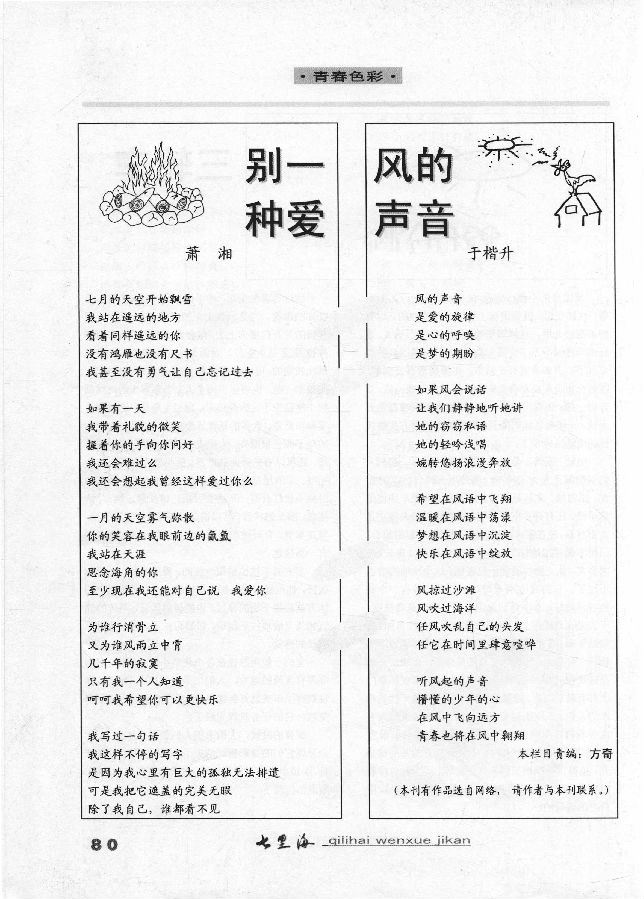 ·青春色彩·
别一
种爱
萧 湘
七月的天空开始飘雪
我站在遥远的地方
看着同样遥远的你
没有鸿雁也没有尺书
我甚至没有勇气让自己忘记过去
如果有一天
我带着礼貌的微笑
握着你的手向你问好
我还会难过么
我还会想起我曾经这样爱过你么
一月的天空雾气弥散
你的笑容在我眼前边的氤氲
我站在天涯
思念海角的你
至少现在我还能对自己说 我爱你
为谁行消骨立
又为谁风雨立中宵
几千年的寂寞
只有我一个人知道
呵呵我希望你可以更快乐
我写过一句话
我这样不停的写字
是因为我心里有巨大的孤独无法排遣
可是我把它遮盖的完美无暇
除了我自己，谁都看不见
风的
声音
于楷升
风的声音
是爱的旋律
是心的呼唤
是梦的期盼
如果风会说话
让我们静静地听她讲
她的窃窃私语
她的轻吟浅唱
婉转悠扬浪漫奔放
希望在风语中飞翔
温暖在风语中荡漾
梦想在风语中沉淀
快乐在风语中绽放
风掠过沙滩
风吹过海洋
任风吹乱自己的头发
任它在时间里肆意喧哗
听风起的声音
懵懂的少年的心
在风中飞向远方
青春也将在风中翱翔
本栏目责编：方奇
（本刊有作品选自网络， 请作者与本刊联系。）
80
七里海 qilihai wenxue jikan